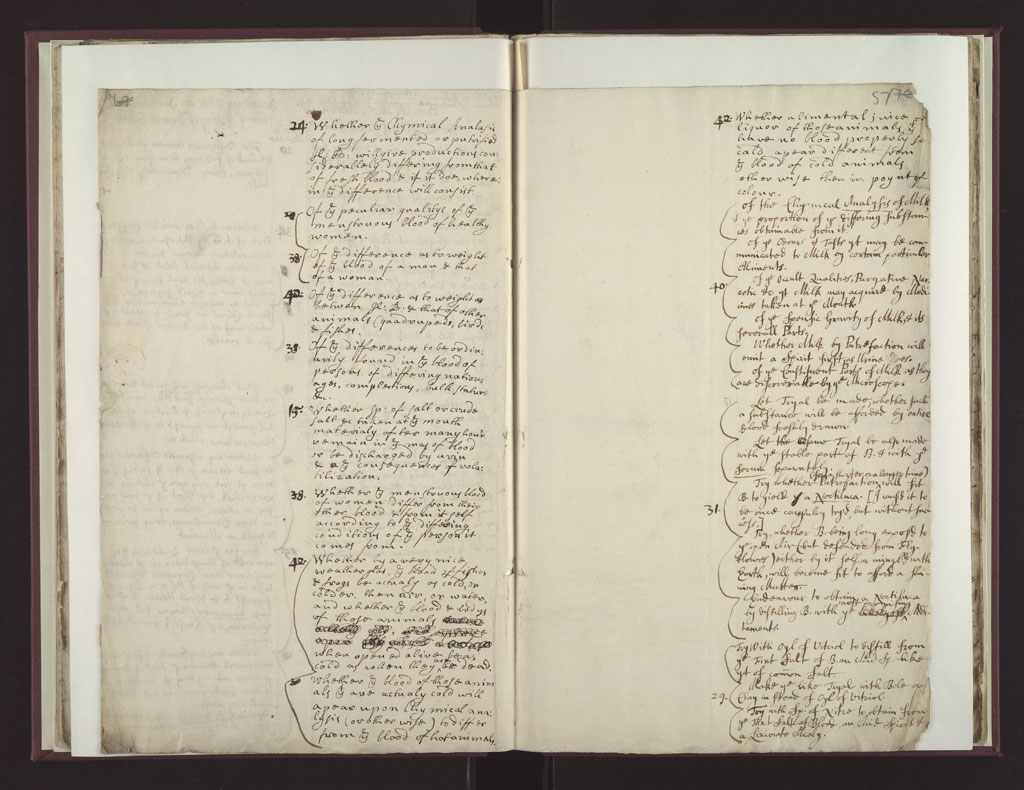 24. Whether ỹ Chymical Analasis
of long fermented or putrified
H: Bd: will give productions con
siderablely differing from that
of fresh blood & if it doe, where
in ỹ difference will consist.
Of ỹ peculiar qualitys of ỹ
menstruous blood of healthy
women.
38 Of ỹ difference as to weight
of ỹ blood of a man & that
of a woman.
42. Of ỹ difference as to weight as
between H. B. & that of other
animals (quadrupeds, birds,
& fishes.
38 Of ỹ differences to be ordin
arily found in ỹ blood of
persons of differing nations
ages, complections, bulk stature
&c.
15. Whether Sp: of salt or crude
salt & taken at ỹ mouth
materialy after many hours
remain in ỹ mas of blood
or be discharged by urin
& ỹ consequences of vola
tilization.
38. Whether ỹ menstruous blood
of women differ from their
other blood & from it self
according to ỹ differing
conditions of ỹ person it
comes from.
42. Whether by a very nice
weatherglas, ỹ blood of fishes
& frogs be actualy as cold, or
colder, then air or water,
and whether ỹ blood & bodys
of those animals
when opened alive be as
cold as when they are dead.
Whether ỹ blood of those anim
als ỹ are actualy cold will
apear upon Chymical ana
lysis (or other wise) to differ
from ỹ blood of hot animals.
57
42. Whether alimental juice or
liquor of those animals ỹ
have no blood properly so
cald apear different from
ỹ blood of cold animals
other wise then in poynt of
colour.
Of the Chymical Analysis of Milk
& ye proportion of ye differing Substan
ces obtainable from it.
Of ye Odors & Tasts yt may be com
municated to Milk by certain particular
Aliments.
40 Of ye occult Qualities, Purgative Nar
cotic &c yt Milk may acquire by Medi
cines taken at ye Mouth
Of ye Specific Gravity of Milk & its
severall Parts.
Whether Milk by Putrefaction will
emit a Spirit first as Urine does.
Of ye Constituent Parts of Milk as they
are discoverable by ye Microscope
Let Tryal be made, whether such
a substance will be afforded by entire
Blood freshly drawn
Let the same Tryal be also made
with ye stable part of B. & with ye
serum separately.
Try whether Putrefaction will fit
B. to yield a Noctiluca. [I caus'd it to
31. be once carefully tryd, but without suc
cess.]
Try, whether B. being long expos'd to
ye open Air (but defended from Fly
blowes) either by it self or mingled with
Earth, will become fit to afford a Shi
ning Matter.
Endeavour to obtain a Noctiluca
by distilling B. with ye Addi
taments.
Try With Oyl of Vitriol to distill from
ye Fixt Salt of B. an Acid Sp. like
yt of comon Salt
Make ye like Tryal with Bole or
29. Clay in stead of Oyl of Vitriol
Try with Sp. of Nitre to obtain from
ye Fixt Salt of Blood, an Acid Spirit &
a Lixiviate Alcaly.